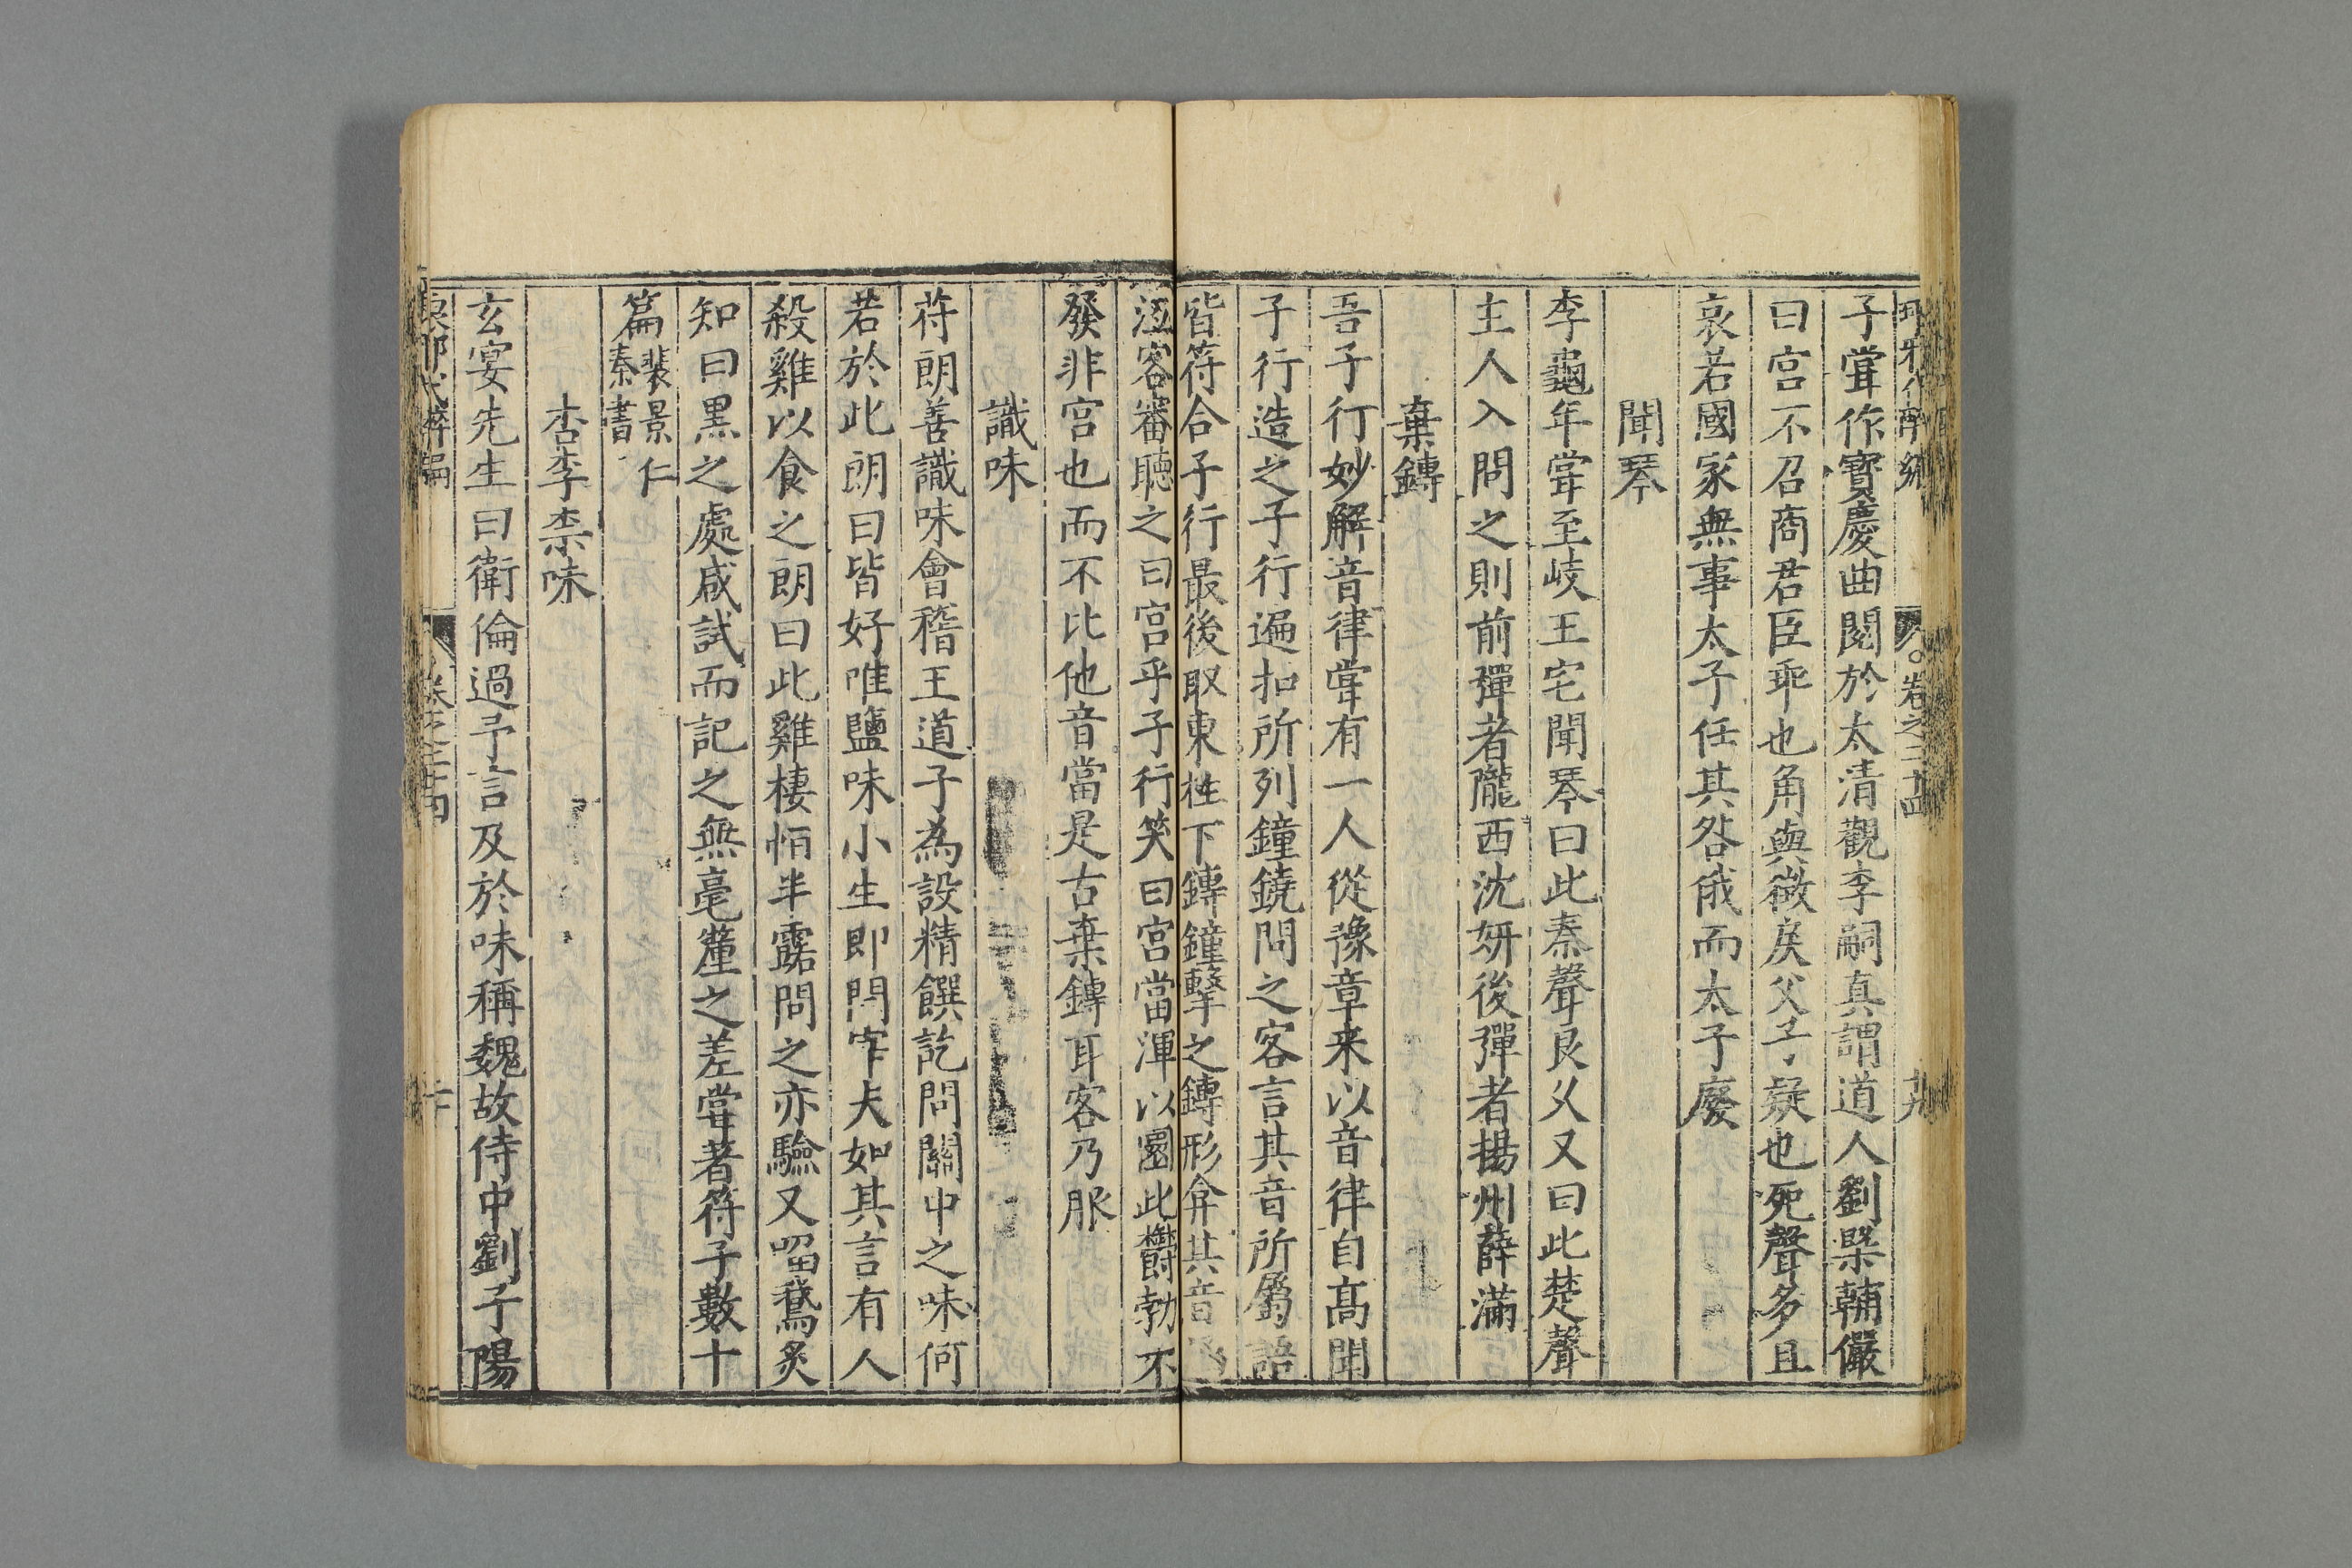 子甞作寳慶曲閱於太清觀李嗣真謂道人劉槩輔儼
曰宫不召商君臣乖也角與徵戾父子疑也死聲多且
哀若國家無事太子任其咎俄而太子廢
聞琴
李龜年甞至岐王宅聞琴曰此秦聲良乆又曰此楚聲
主人入問之則前彈者隴西沈妍後彈者揚州薛滿
棄鏄
吾子行妙解音律甞有一人從豫章来以音律自高聞
子行造之子行遍扣所列鐘鐃問之客言其音所屬語
皆符合子行最後取東柱下鏄鐘擊之鏄形弇其音
客審聽之曰宫乎子行笑曰宫當渾以圜此欝勃不
發非宫也而不比他音當是古棄鏄耳客乃服
識味
苻朗善識味會稽王道子為設精饌訖問關中之味何
若於此朗曰皆好唯鹽味小生即問宰夫如其言有人
殺雞以食之朗曰此雞棲恒半露問之亦驗又啗鵞炙
知曰黑之處咸試而記之無毫釐之差甞著符子數十
篇裴景仁
秦書
杏李柰味
玄宴先生曰衛倫過予言及於味稱魏故侍中劉子陽